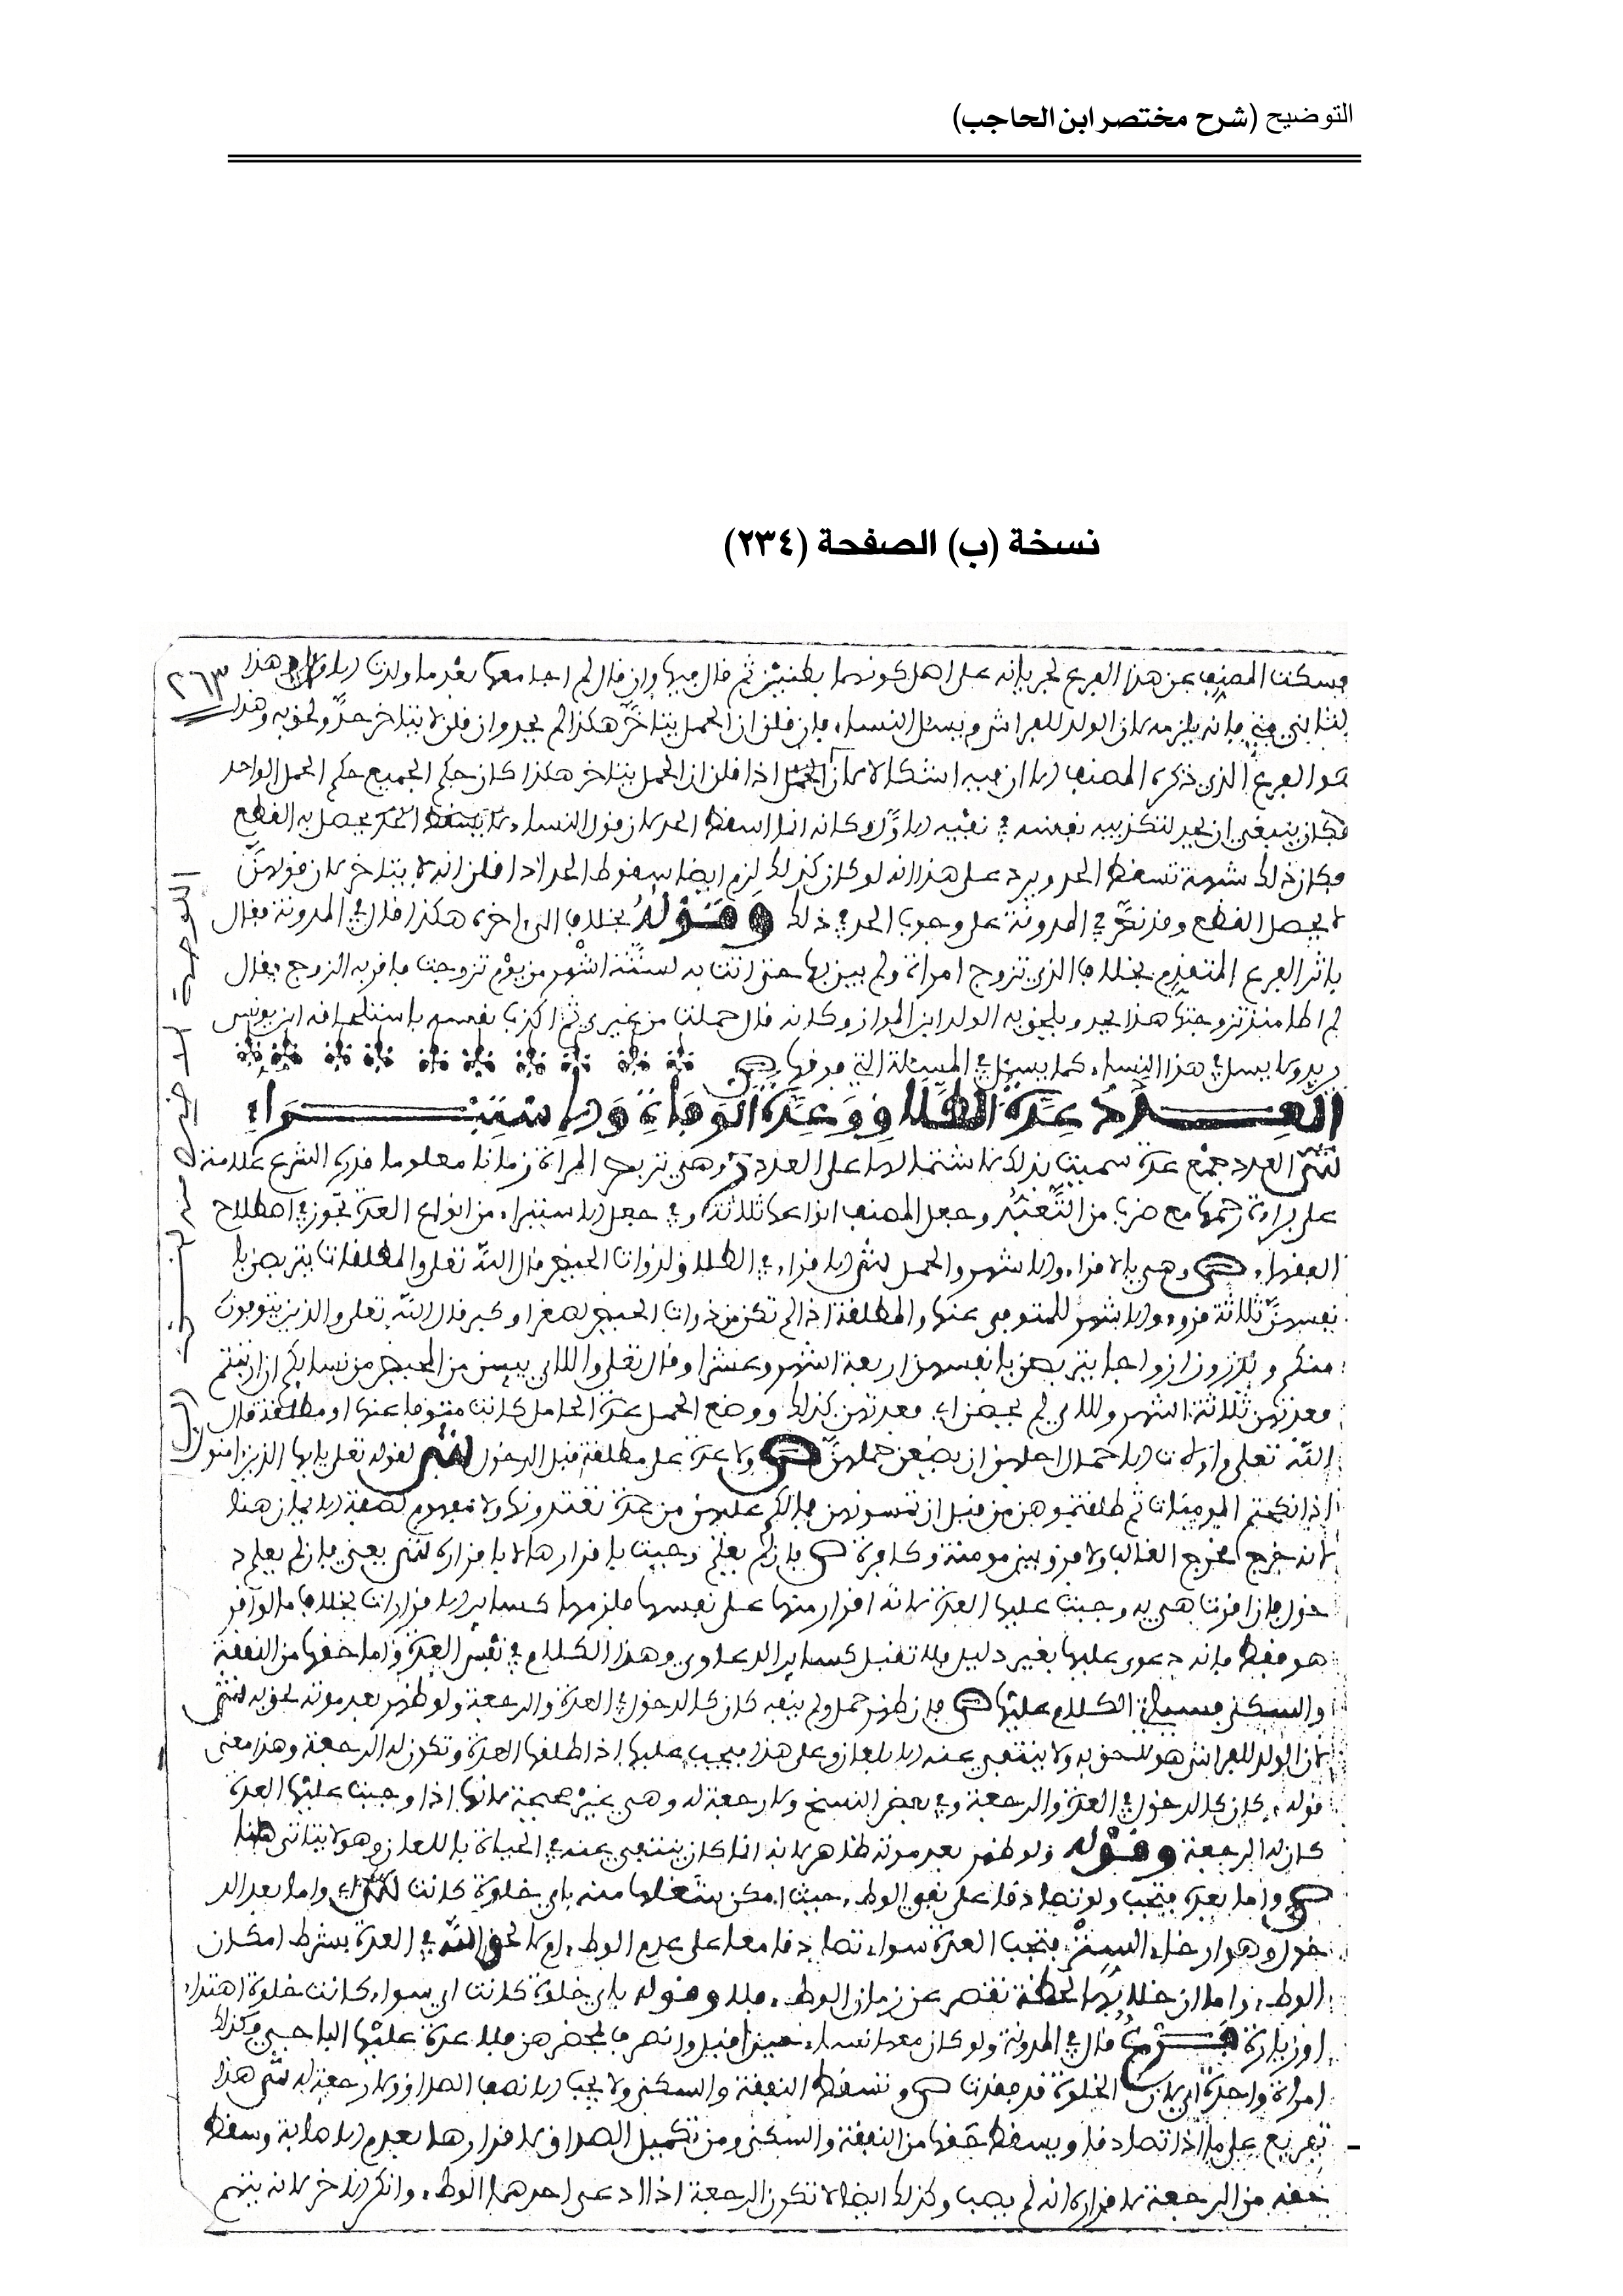 التوضيح (شرح مختصر ابن الحاجب)
نسخة (ب) الصفحة (٢٣٤)
٢٦٣
فسكت المصنف عن هذا الفرع لجريانه على اصل كونهما بطنين ثم قال فيها وان قال لم اجامعها بعد ما ولدت الاول هذا
الثاني مني فانه يلزمه لان الولد للفراش ويسئل النساء فان قلن ان الحمل يتاخر هكذا لم يحد وان قلن لا يتاخر حد ولحق به وهذا
هو الفرع الذي ذكره المصنف الا ان فيه اشكالا لان الحمل اذا قلن ان الحمل يتاخر هكذا كان حكم الجميع حكم الحمل الواحد
فكان ينبغي ان يحد لتكذيبه نفسه في نفيه الاول وكانه انما اسقط الحد لان قول النساء لا يحصل به القطع
فكان ذلك شبهة تسقط الحد ويرد على هذا انه لو كان كذلك لزم ايضا سقوط الحد اذا قلن انه لا يتاخر لان قولهن
لا يحصل القطع وقد نص في المدونة على وجوب الحد في ذلك وقوله بخلاف الى اخره هكذا قال في المدونة فقال
باثر الفرع المتقدم بخلاف الذي تزوج امراة ولم يبن بها حتى اتت به لستة اشهر من يوم تزوجت فاقر به الزوج وقال
لم اطا منذ تزوجتها هذا يحد ويلحق به الولد ابن المواز وكانه قال حملت من غيري ثم اكذب نفسه باستلحاقه ابن يونس
يريد ولا يسئل في هذا النساء كما يسئل في المسئلة التي فوقها ص
العدد عدة الطلاق وعدة الوفاة والاستبراء
ش العدد جمع عدة سميت بذلك لاشتمالها على العدد وهي تربص المراة زمانا معلوما قدره الشرع علامة
على براءة رحمها مع ضرب من التعبد وجعل المصنف انواعها ثلاثة وفي جعل الاستبراء من انواع العدة تجوز في اصطلاح
الفقهاء ص وهي بالاقراء والاشهر والحمل ش الاقراء في الطلاق لذوات الحيض قال الله تعلى والمطلقات يتربصن با
نفسهن ثلاثة قروء والاشهر للمتوفى عنها والمطلقة اذا لم تكن من ذوات الحيض لصغر او كبر قال الله تعلى والذين يتوفون
منكم ويذرون ازواجا يتربصن بانفسهن اربعة اشهر وعشرا وقال تعلى واللاي يئسن من المحيض من نسايكم ان ارتبتم
فعدتهن ثلاثة اشهر واللاي لم يحضن اي فعدتهن كذلك ووضع الحمل عدة الحامل كانت متوفا عنها او مطلقة قال
الله تعلى واولات الاحمال اجلهن ان يضعن حملهن ص ولا عدة على مطلقة قبل الدخول ش لقوله تعلى يايها الذين امنوا
اذا نكحتم المومنات ثم طلقتموهن من قبل ان تمسوهن فما لكم عليهن من عدة تعتدونها ولا مفهوم لصفة الايمان هنا
لانه خرج مخرج الغالب ولا فرق بين مومنة وكافرة ص فان لم يعلم وجبت باقرارها لا باقراره ش يعني فان لم يعلم د
خول فان اقرت هي به وجبت عليها العدة لانه اقرار منها على نفسها فلزمها كساير الاقرارات بخلاف ما لو اقر
هو فقط فانه دعوى عليها بغير دليل فلا تقبل كساير الدعاوي وهذا الكلام في نفس العدة واما حقها من النفقة
والسكنى فسياتي الكلام عليها ص فان ظهر حمل ولم ينفه كان كالدخول في العدة والرجعة ولو ظهر بعد موته لحق به ش
لان الولد للفراش هو لاحق به ولا ينتفي عنه الا بلعان وعلى هذا فيجب عليها اذا طلقها العدة وتكون له الرجعة وهذا معنى
قوله كان كالدخول في العدة والرجعة وفي بعض النسخ ولا رجعة له وهي غير صحيحة لانها اذا وجبت عليها العدة
كان له الرجعة وقوله ولو ظهر بعد موته ظاهر لانه انما كان ينتفي عنه في الحياة باللعان وهو لا يتاتى هنا
ص واما بعده فتجب ولو تصادقا على نفي الوطء حيث امكن شغلها منه باي خلوة كانت ش اي واما بعد الد
خول وهو ارخاء الستر فتجب العدة سواء تصادقا معا على عدم الوطء ام لا لحق الله في العدة بشرط امكان
الوطء واما ان خلا بها لحظة تقصر عن زمان الوطء فلا وقوله باي خلوة كانت اي سواء كانت خلوة اهتداء
او زيارة فرع قال في المدونة ولو كان معها نساء حين قبل وانصرف بمحضرهن فلا عدة عليها الباجي وكذلك
امراة واحدة اي لان الخلوة قد فقدت ص وتسقط النفقة والسكنى ولا يجب الا نصف الصداق ولا رجعة له ش هذا
تفريع على ما اذا تصادقا ويسقط حقها من النفقة والسكنى ومن تكميل الصداق لاقرارها بعدم الاصابة وسقط
حقه من الرجعة لاقراره انه لم يصب وكذلك ايضا لا تكون الرجعة اذا ادعى احدهما الوطء وانكر الاخر لانه يتهم